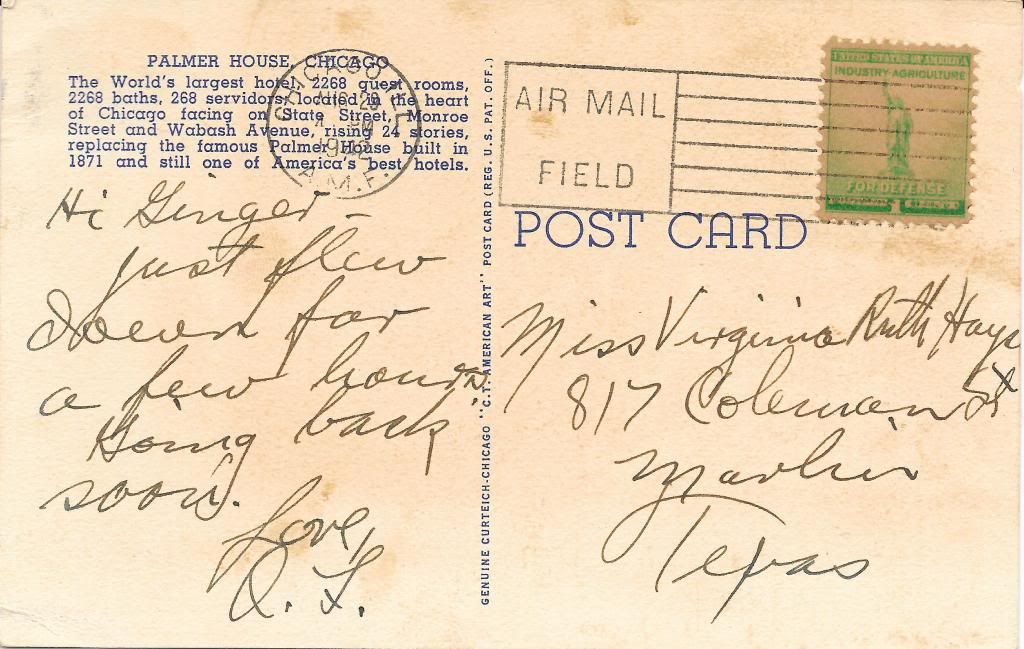 PALMER HOUSE, CHICAGO
The World's largest hotel, 2268 guest rooms,
2268 baths, 268 servidors, located in the heart
of Chicago facing on State Street, Monroe
Street and Wabash Avenue, rising 24 stories,
replacing the famous Palmer House built in
1871 and still one of America's best hotels.
CHICAGO, ILL.
AUG 29
PM
1942
A.M.F.
AIR MAIL
FIELD
UNITED STATES OF AMERICA
INDUSTRY-AGRICULTURE
FOR DEFENSE
1
POST CARD
Hi Ginger -
just flew
down for
a few hours
Going back
soon.
Love,
GENUINE CURTEICH-CHICAGO "C.T. AMERICAN ART" POST CARD (REG. U.S. PAT. OFF.)
Miss Virginia Ruth Hays
817 Coleman St
Marlin
Texas